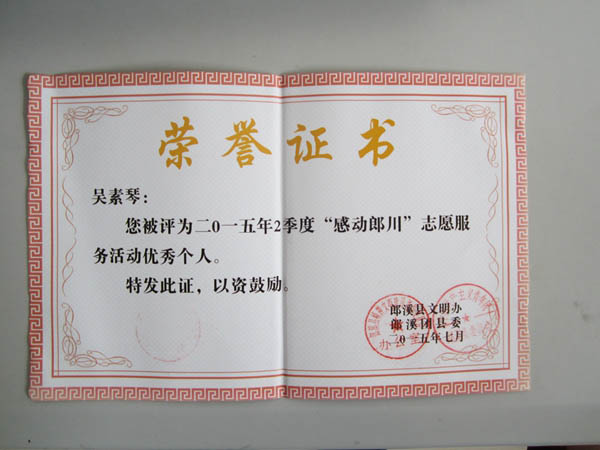 荣誉证书
吴素琴：
您被评为二0一五年2季度“感动郎川”志愿服
务活动优秀个人。
特发此证，以资鼓励。
郎溪县文明办
郎溪团县委
二0一五年七月
办公室